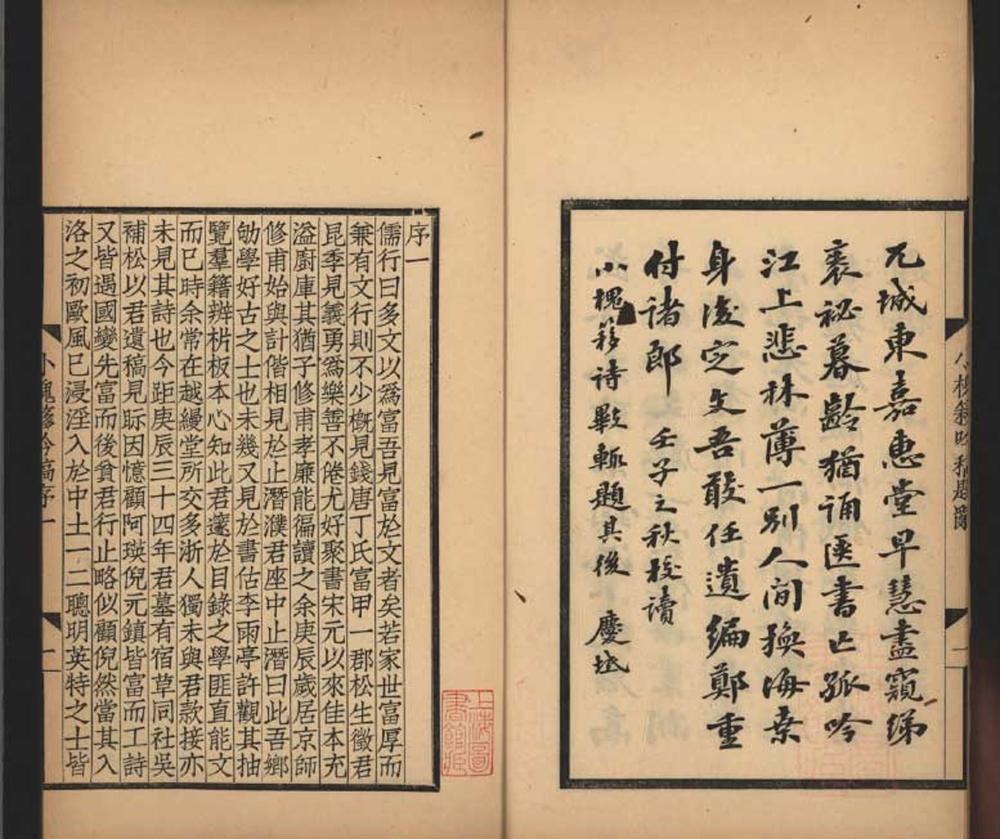 兀城東嘉惠堂早慧盡窺綈
袠祕暮齡猶誦匧書亡孤吟
江上悲林薄一別人間換海桑
身後定文吾敢任遺編鄭重
付諸郎　壬子之秋校讀
小槐簃詩斁輒題其後　慶坻
序一
儒行曰多文以爲富吾見富於文者矣若家世富厚而
兼有文行則不少概見錢唐丁氏富甲一郡松生徵君
昆季見義勇爲樂善不倦尤好聚書宋元以來佳本充
溢廚庫其猶子修甫孝廉能徧讀之余庚辰歲居京師
修甫始與計偕相見於止潛濮君座中止潛曰此吾鄉
劬學好古之士也未幾又見於書估李雨亭許觀其抽
覽羣籍辨析板本心知此君邃於目錄之學匪直能文
而已時余常在越縵堂所交多浙人獨未與君款接亦
未見其詩也今距庚辰三十四年君墓有宿草同社吳
補松以君遺稿見眎因憶顧阿瑛倪元鎮皆富而工詩
又皆遇國變先富而後貧君行止略似顧倪然當其入
洛之初歐風已浸淫入於中土一二聰明英特之士皆
小槐簃吟稿序一
一
小槐簃吟稿題辭
一
上海圖
書館藏